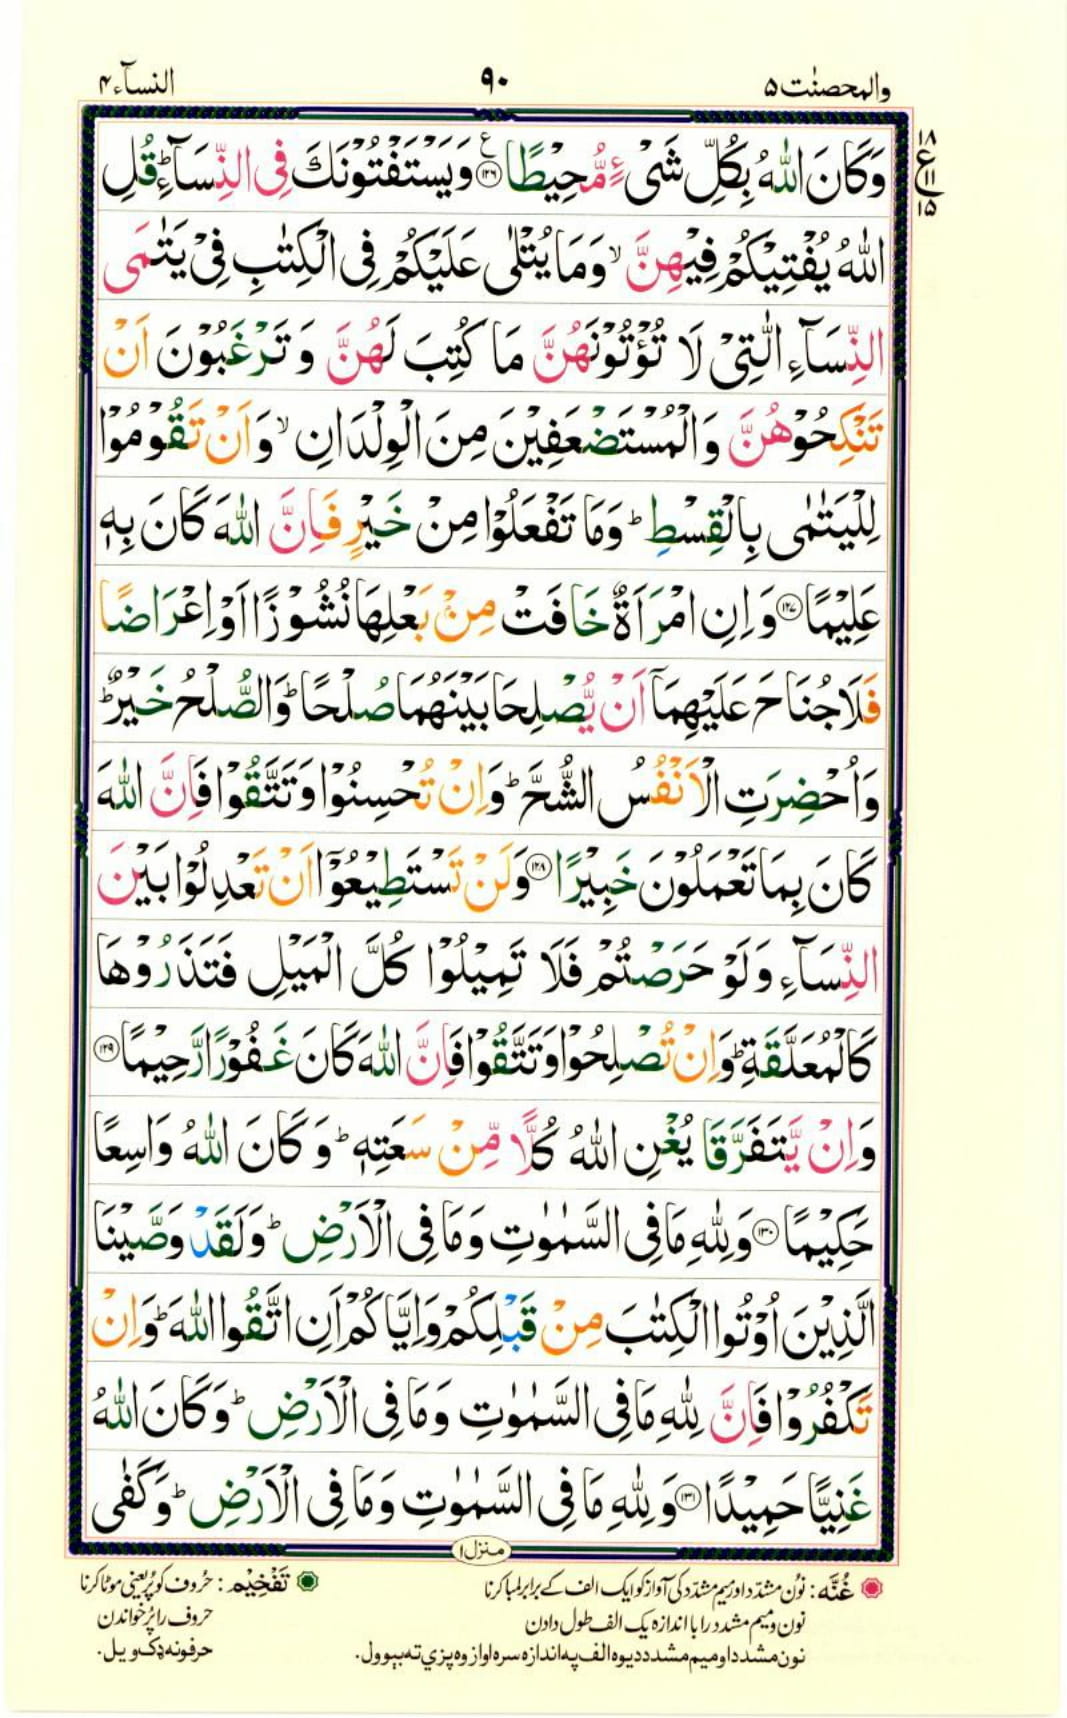 والمحصنٰت ۵
۹۰
النسآء ۴
۱۸
ع
۱۱
۱۵
وَكَانَ اللّٰهُ بِكُلِّ شَیْءٍ مُّحِیْطًا ﴿۱۲۶﴾ وَیَسْتَفْتُوْنَكَ فِی النِّسَآءِ ؕ قُلِ
اللّٰهُ یُفْتِیْكُمْ فِیْهِنَّ ۙ وَمَا یُتْلٰی عَلَیْكُمْ فِی الْكِتٰبِ فِیْ یَتٰمَی
النِّسَآءِ الّٰتِیْ لَا تُؤْتُوْنَهُنَّ مَا كُتِبَ لَهُنَّ وَ تَرْغَبُوْنَ اَنْ
تَنْكِحُوْهُنَّ وَالْمُسْتَضْعَفِیْنَ مِنَ الْوِلْدَانِ ۙ وَاَنْ تَقُوْمُوْا
لِلْیَتٰمٰی بِالْقِسْطِ ؕ وَمَا تَفْعَلُوْا مِنْ خَیْرٍ فَاِنَّ اللّٰهَ كَانَ بِهٖ
عَلِیْمًا ﴿۱۲۷﴾ وَاِنِ امْرَاَةٌ خَافَتْ مِنْۢ بَعْلِهَا نُشُوْزًا اَوْ اِعْرَاضًا
فَلَا جُنَاحَ عَلَیْهِمَاۤ اَنْ یُّصْلِحَا بَیْنَهُمَا صُلْحًا ؕ وَالصُّلْحُ خَیْرٌ ؕ
وَاُحْضِرَتِ الْاَنْفُسُ الشُّحَّ ؕ وَاِنْ تُحْسِنُوْا وَتَتَّقُوْا فَاِنَّ اللّٰهَ
كَانَ بِمَا تَعْمَلُوْنَ خَبِیْرًا ﴿۱۲۸﴾ وَلَنْ تَسْتَطِیْعُوْۤا اَنْ تَعْدِلُوْا بَیْنَ
النِّسَآءِ وَلَوْ حَرَصْتُمْ فَلَا تَمِیْلُوْا كُلَّ الْمَیْلِ فَتَذَرُوْهَا
كَالْمُعَلَّقَةِ ؕ وَاِنْ تُصْلِحُوْا وَتَتَّقُوْا فَاِنَّ اللّٰهَ كَانَ غَفُوْرًا رَّحِیْمًا ﴿۱۲۹﴾
وَاِنْ یَّتَفَرَّقَا یُغْنِ اللّٰهُ كُلًّا مِّنْ سَعَتِهٖ ؕ وَكَانَ اللّٰهُ وَاسِعًا
حَكِیْمًا ﴿۱۳۰﴾ وَلِلّٰهِ مَا فِی السَّمٰوٰتِ وَمَا فِی الْاَرْضِ ؕ وَلَقَدْ وَصَّیْنَا
الَّذِیْنَ اُوْتُوا الْكِتٰبَ مِنْ قَبْلِكُمْ وَاِیَّاكُمْ اَنِ اتَّقُوا اللّٰهَ ؕ وَاِنْ
تَكْفُرُوْا فَاِنَّ لِلّٰهِ مَا فِی السَّمٰوٰتِ وَمَا فِی الْاَرْضِ ؕ وَكَانَ اللّٰهُ
غَنِیًّا حَمِیْدًا ﴿۱۳۱﴾ وَلِلّٰهِ مَا فِی السَّمٰوٰتِ وَمَا فِی الْاَرْضِ ؕ وَكَفٰی
منزل ۱
غُنّه: نُون مشدّد اور میم مشدّد کی آواز کو ایک الف کے برابر لمبا کرنا
نون و میم مشدد را با اندازہ یک الف طول دادن
نون مشدد او میم مشدد دیوہ الف په اندازه سره اواز وه پزي ته بېوول.
تَفْخِیْم: حُروف کو پُر یعنی موٹا کرنا
حروف را پُر خواندن
حرفونه ډک ویل.